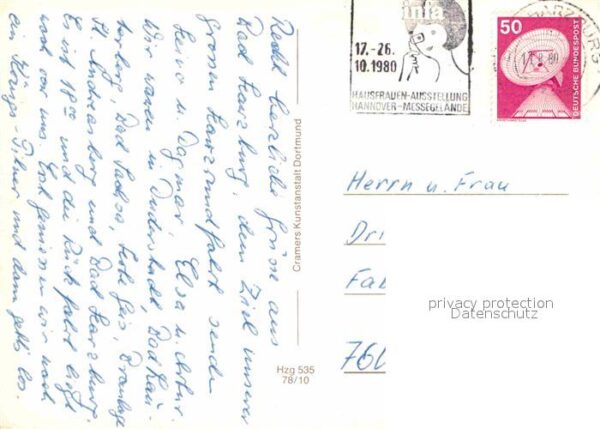 Recht herzliche Grüsse aus
Bad Harzburg, dem Ziel unserer
grossen Harzrundfahrt senden
Heinz u. Dagmar, Elsa u. Arthur.
Wir waren in Duderstadt, Bad Lau-
terberg, Bad Sachsa, Hohe Geis, Braunlage
St. Andreasberg und Bad Harzburg.
Es ist 18°° und die Rückfahrt liegt
noch vor uns. Erst geniessen wir noch
ein Königs-Pilsner und dann gehts los.
Cramers Kunstanstalt Dortmund
Hzg 535
78/10
infa
17.-26.
10.1980
HAUSFRAUEN-AUSSTELLUNG
HANNOVER-MESSEGELÄNDE
50
DEUTSCHE BUNDESPOST
Herrn u. Frau
Dri
Fab
760
privacy protection
Datenschutz